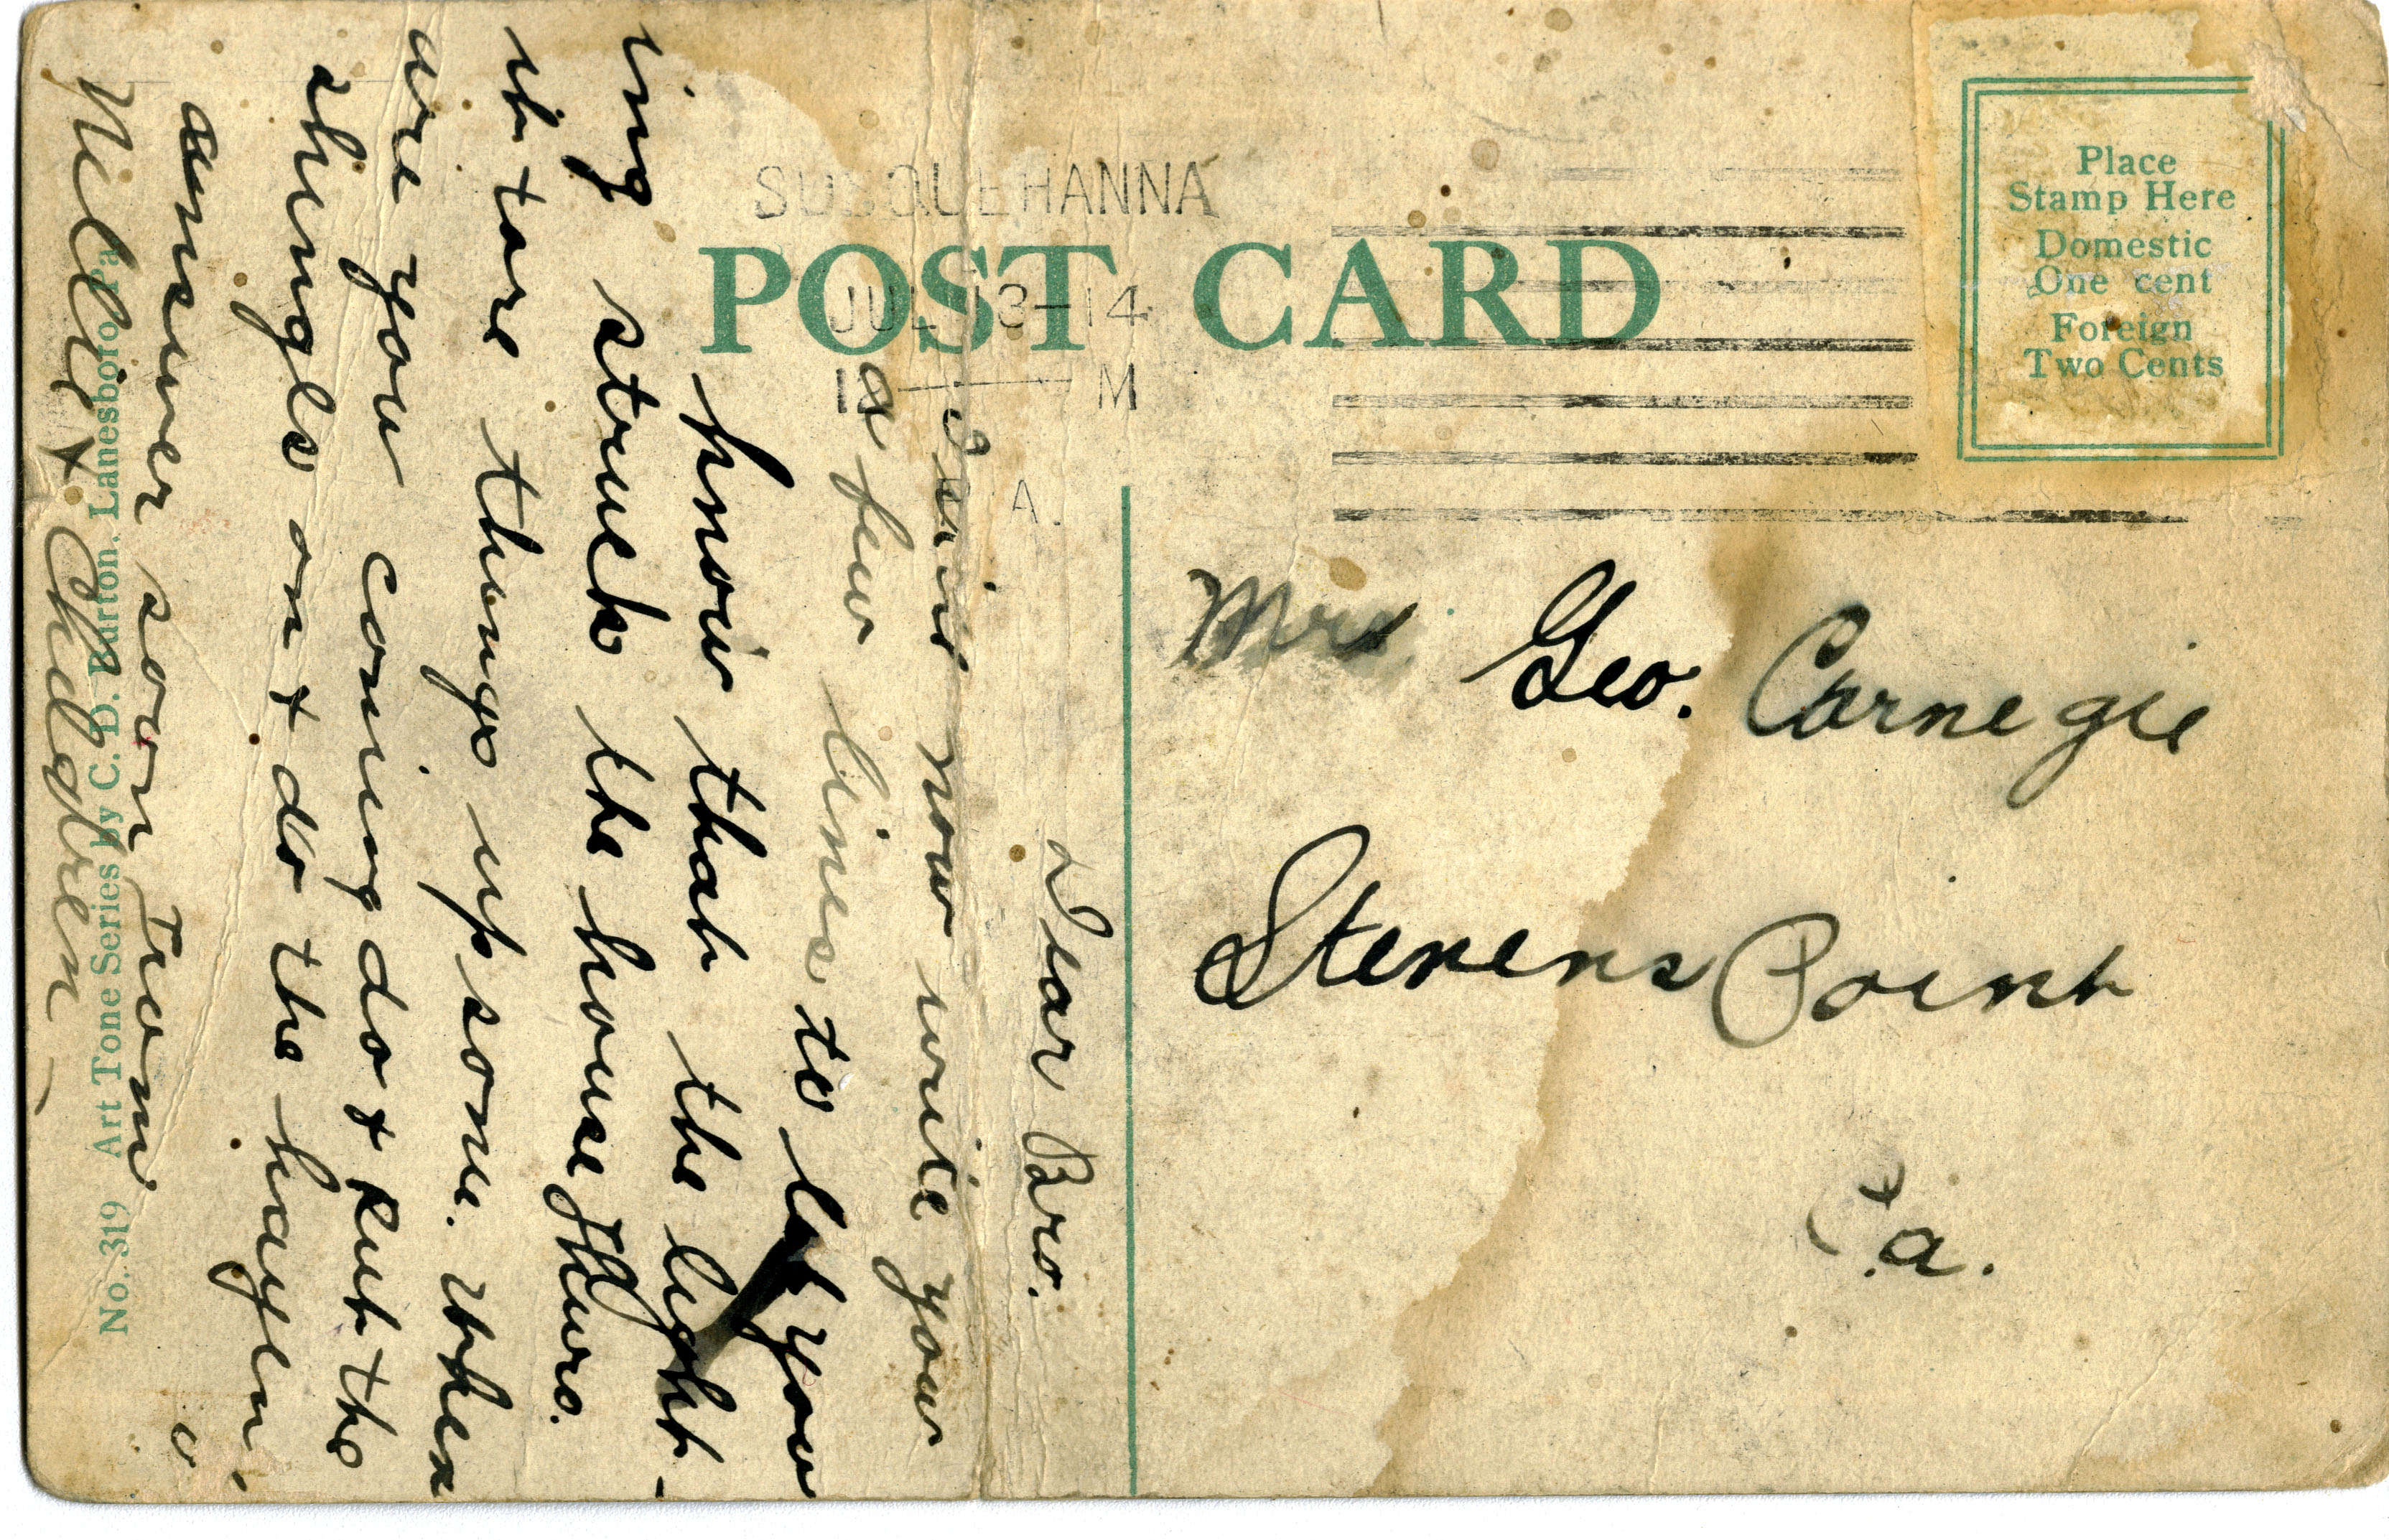 SUSQUEHANNA
JUL 13-14
M
A.
POST CARD
Place
Stamp Here
Domestic
One cent
Foreign
Two Cents
Mrs Geo. Carnegie
Stevens Point
Pa.
Dear Bro.
I will now write you
a few lines to let you
know that the light-
ing struck the house Thurs.
it tore things up some. when
are you coming do + put the
shingls on + do the hayen.
answer soon From
Nellie + Chldren
No. 319 Art Tone Series by C. D. Burton, Lanesboro, Pa